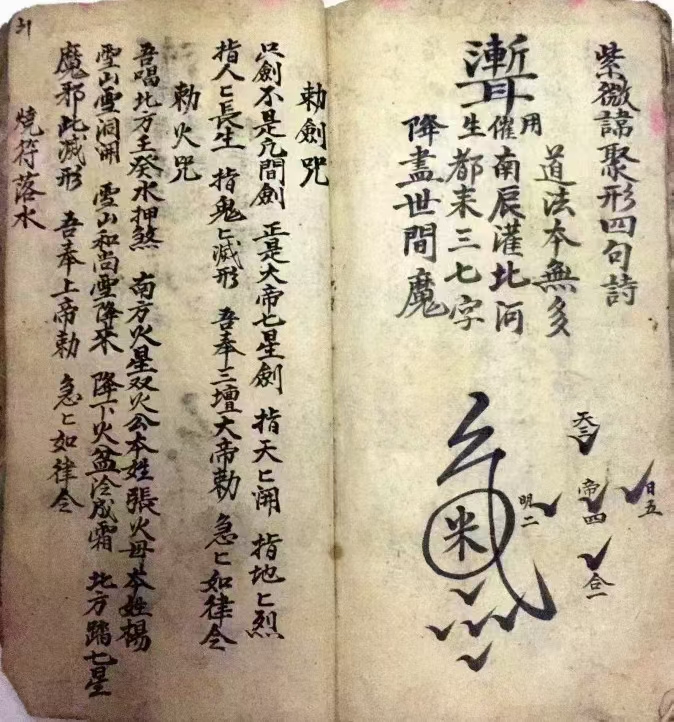 紫微諱聚形四句詩
道法本無多
用
催南辰灌北河
生都来三七字
降盡世間魔
日五
天三
帝四
合一
明二
米
勅劍咒
只劍不是凢間劍 正是大帝七星劍 指天ヒ開 指地ヒ烈
指人ヒ長生 指鬼ヒ滅形 吾奉三壇大帝勅 急ヒ如律令
勅火咒
吾唱北方壬癸水押煞 南方火星双火公本姓張火母本姓楊
雪山雪洞開 雪山和尚雪降来 降下火盆冷成霜 北方踏七星
魔邪此滅形 吾奉上帝勅 急ヒ如律令
燒符落水
31